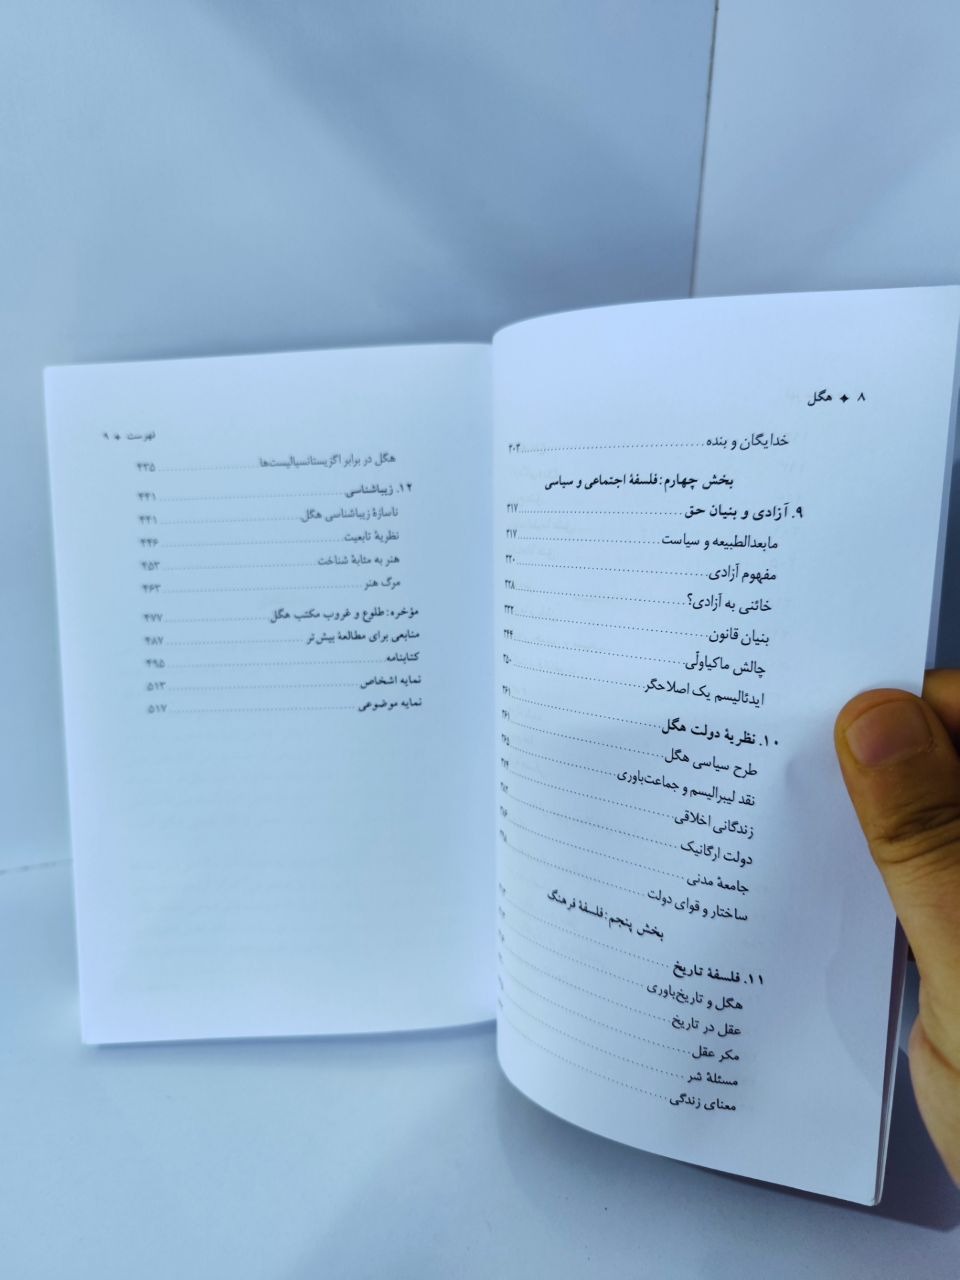 ۸ ✦ هگل
خدایگان و بنده ........ ۳۰۳
بخش چهارم: فلسفهٔ اجتماعی و سیاسی
۹. آزادی و بنیان حق ........ ۳۱۷
مابعدالطبیعه و سیاست ........ ۳۱۷
مفهوم آزادی ........ ۳۲۰
خائنی به آزادی؟ ........ ۳۲۸
بنیان قانون ........ ۳۳۲
چالش ماکیاولّی ........ ۳۴۴
ایدئالیسم یک اصلاحگر ........ ۳۵۰
۱۰. نظریهٔ دولت هگل ........ ۳۶۱
طرح سیاسی هگل ........ ۳۶۱
نقد لیبرالیسم و جماعت‌باوری ........ ۳۶۵
زندگانی اخلاقی ........ ۳۷۴
دولت ارگانیک ........
جامعهٔ مدنی ........
ساختار و قوای دولت ........
بخش پنجم: فلسفهٔ فرهنگ
۱۱. فلسفهٔ تاریخ ........
هگل و تاریخ‌باوری ........
عقل در تاریخ ........
مکر عقل ........
مسئلهٔ شر ........
معنای زندگی ........
فهرست ✦ ۹
هگل در برابر اگزیستانسیالیست‌ها ........ ۴۳۵
۱۲. زیباشناسی ........ ۴۴۱
ناسازهٔ زیباشناسی هگل ........ ۴۴۱
نظریهٔ تابعیت ........ ۴۴۶
هنر به مثابهٔ شناخت ........ ۴۵۳
مرگ هنر ........ ۴۶۳
مؤخره: طلوع و غروب مکتب هگل ........ ۴۷۷
منابعی برای مطالعهٔ بیش‌تر ........ ۴۸۷
کتابنامه ........ ۴۹۵
نمایه اشخاص ........ ۵۱۳
نمایه موضوعی ........ ۵۱۷